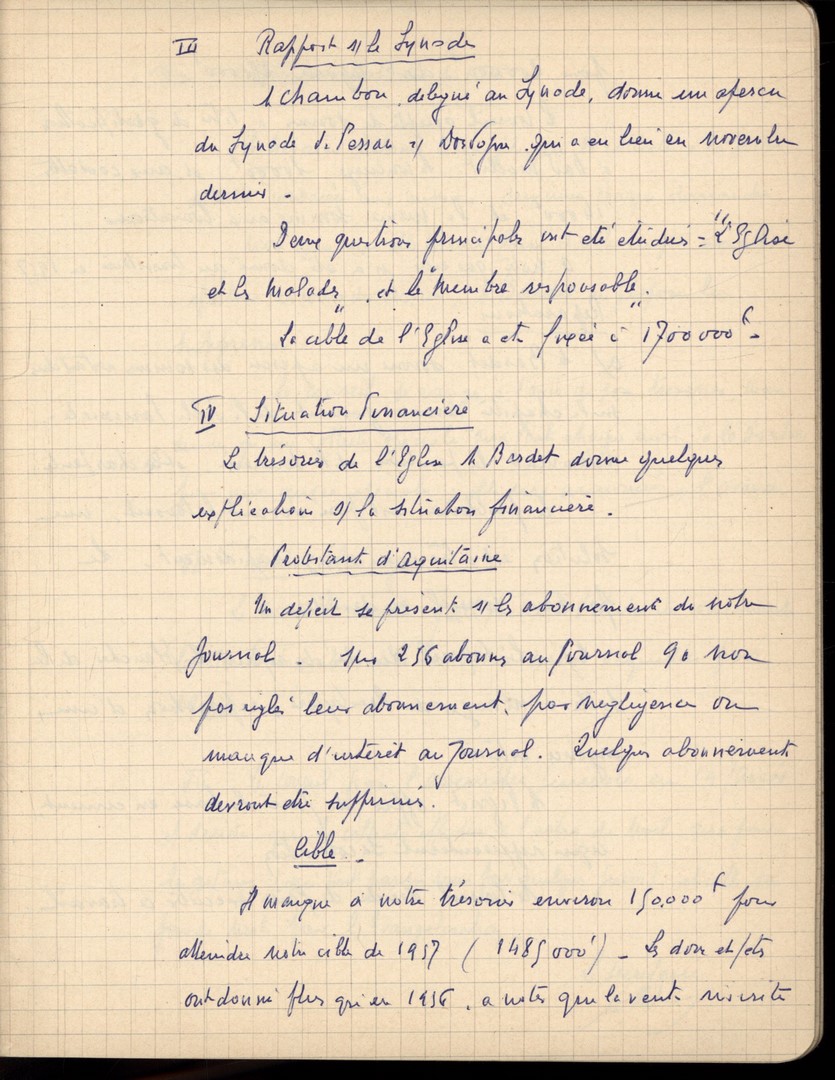 III Rapport s/ le Synode
M Chambon, délégué au Synode, donne un aperçu
du Synode de Pessac s/ Dordogne qui a eu lieu en novembre
dernier.
Deux questions principales ont été étudiés = "L'Eglise
et les Malades", et le "Membre responsable".
La cible de l'Eglise a été fixée à 1700 000 f -
IV Situation Financière
Le trésorier de l'Eglise M Bardet donne quelques
explications s/ la situation financière.
Protestant d'Aquitaine
Un déficit se présente s/ les abonnements de notre
Journal. Sur 256 abonnés au Journal 90 n'ont
pas réglé leur abonnement, par négligence ou
manque d'intérêt au Journal. Quelques abonnements
devront être supprimés.
Cible -
Il manque à notre trésorier environ 150.000 f pour
atteindre notre cible de 1957 (1485 000 f) - Les dons et
ont donné plus qu'en 1956, a noter que la vente